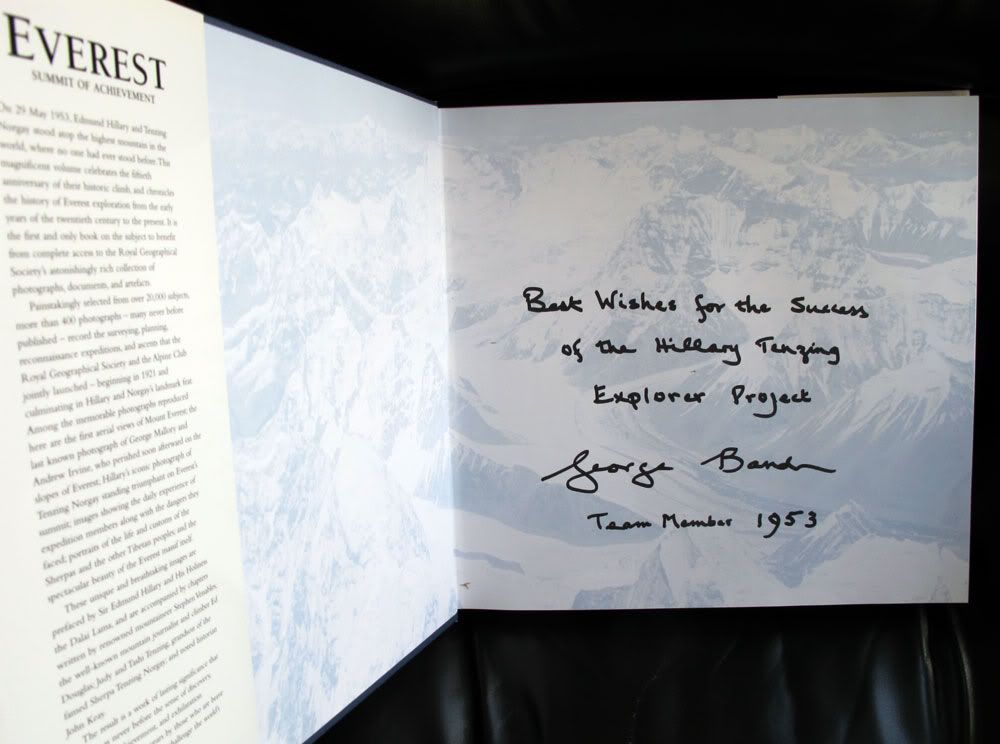 EVEREST
SUMMIT OF ACHIEVEMENT
On 29 May 1953, Edmund Hillary and Tenzing
Norgay stood atop the highest mountain in the
world, where no one had ever stood before. This
magnificent volume celebrates the fiftieth
anniversary of their historic climb, and chronicles
the history of Everest exploration from the early
years of the twentieth century to the present. It is
the first and only book on the subject to benefit
from complete access to the Royal Geographical
Society's astonishingly rich collection of
photographs, documents, and artefacts.
Painstakingly selected from over 20,000 subjects,
more than 400 photographs – many never before
published – record the surveying, planning,
reconnaissance expeditions, and ascents that the
Royal Geographical Society and the Alpine Club
jointly launched – beginning in 1921 and
culminating in Hillary and Norgay's landmark feat.
Among the memorable photographs reproduced
here are the first aerial views of Mount Everest; the
last known photograph of George Mallory and
Andrew Irvine, who perished soon afterward on the
slopes of Everest; Hillary's iconic photograph of
Tenzing Norgay standing triumphant on Everest's
summit; images showing the daily experience of
expedition members along with the dangers they
faced; portraits of the life and customs of the
Sherpas and the other Tibetan peoples; and the
spectacular beauty of the Everest massif itself.
These unique and breathtaking images are
prefaced by Sir Edmund Hillary and His Holiness
the Dalai Lama, and are accompanied by chapters
written by renowned mountaineer Stephen Venables,
the well-known mountain journalist and climber Ed
Douglas, Judy and Tashi Tenzing, grandson of the
famed Sherpa Tenzing Norgay, and noted historian
John Keay.
The result is a work of lasting significance that
never before the sense of discovery,
achievement, and exhilaration
years by those who are brave
challenge the world's
Best Wishes for the Success
of the Hillary Tenzing
Explorer Project
George Band
Team Member 1953